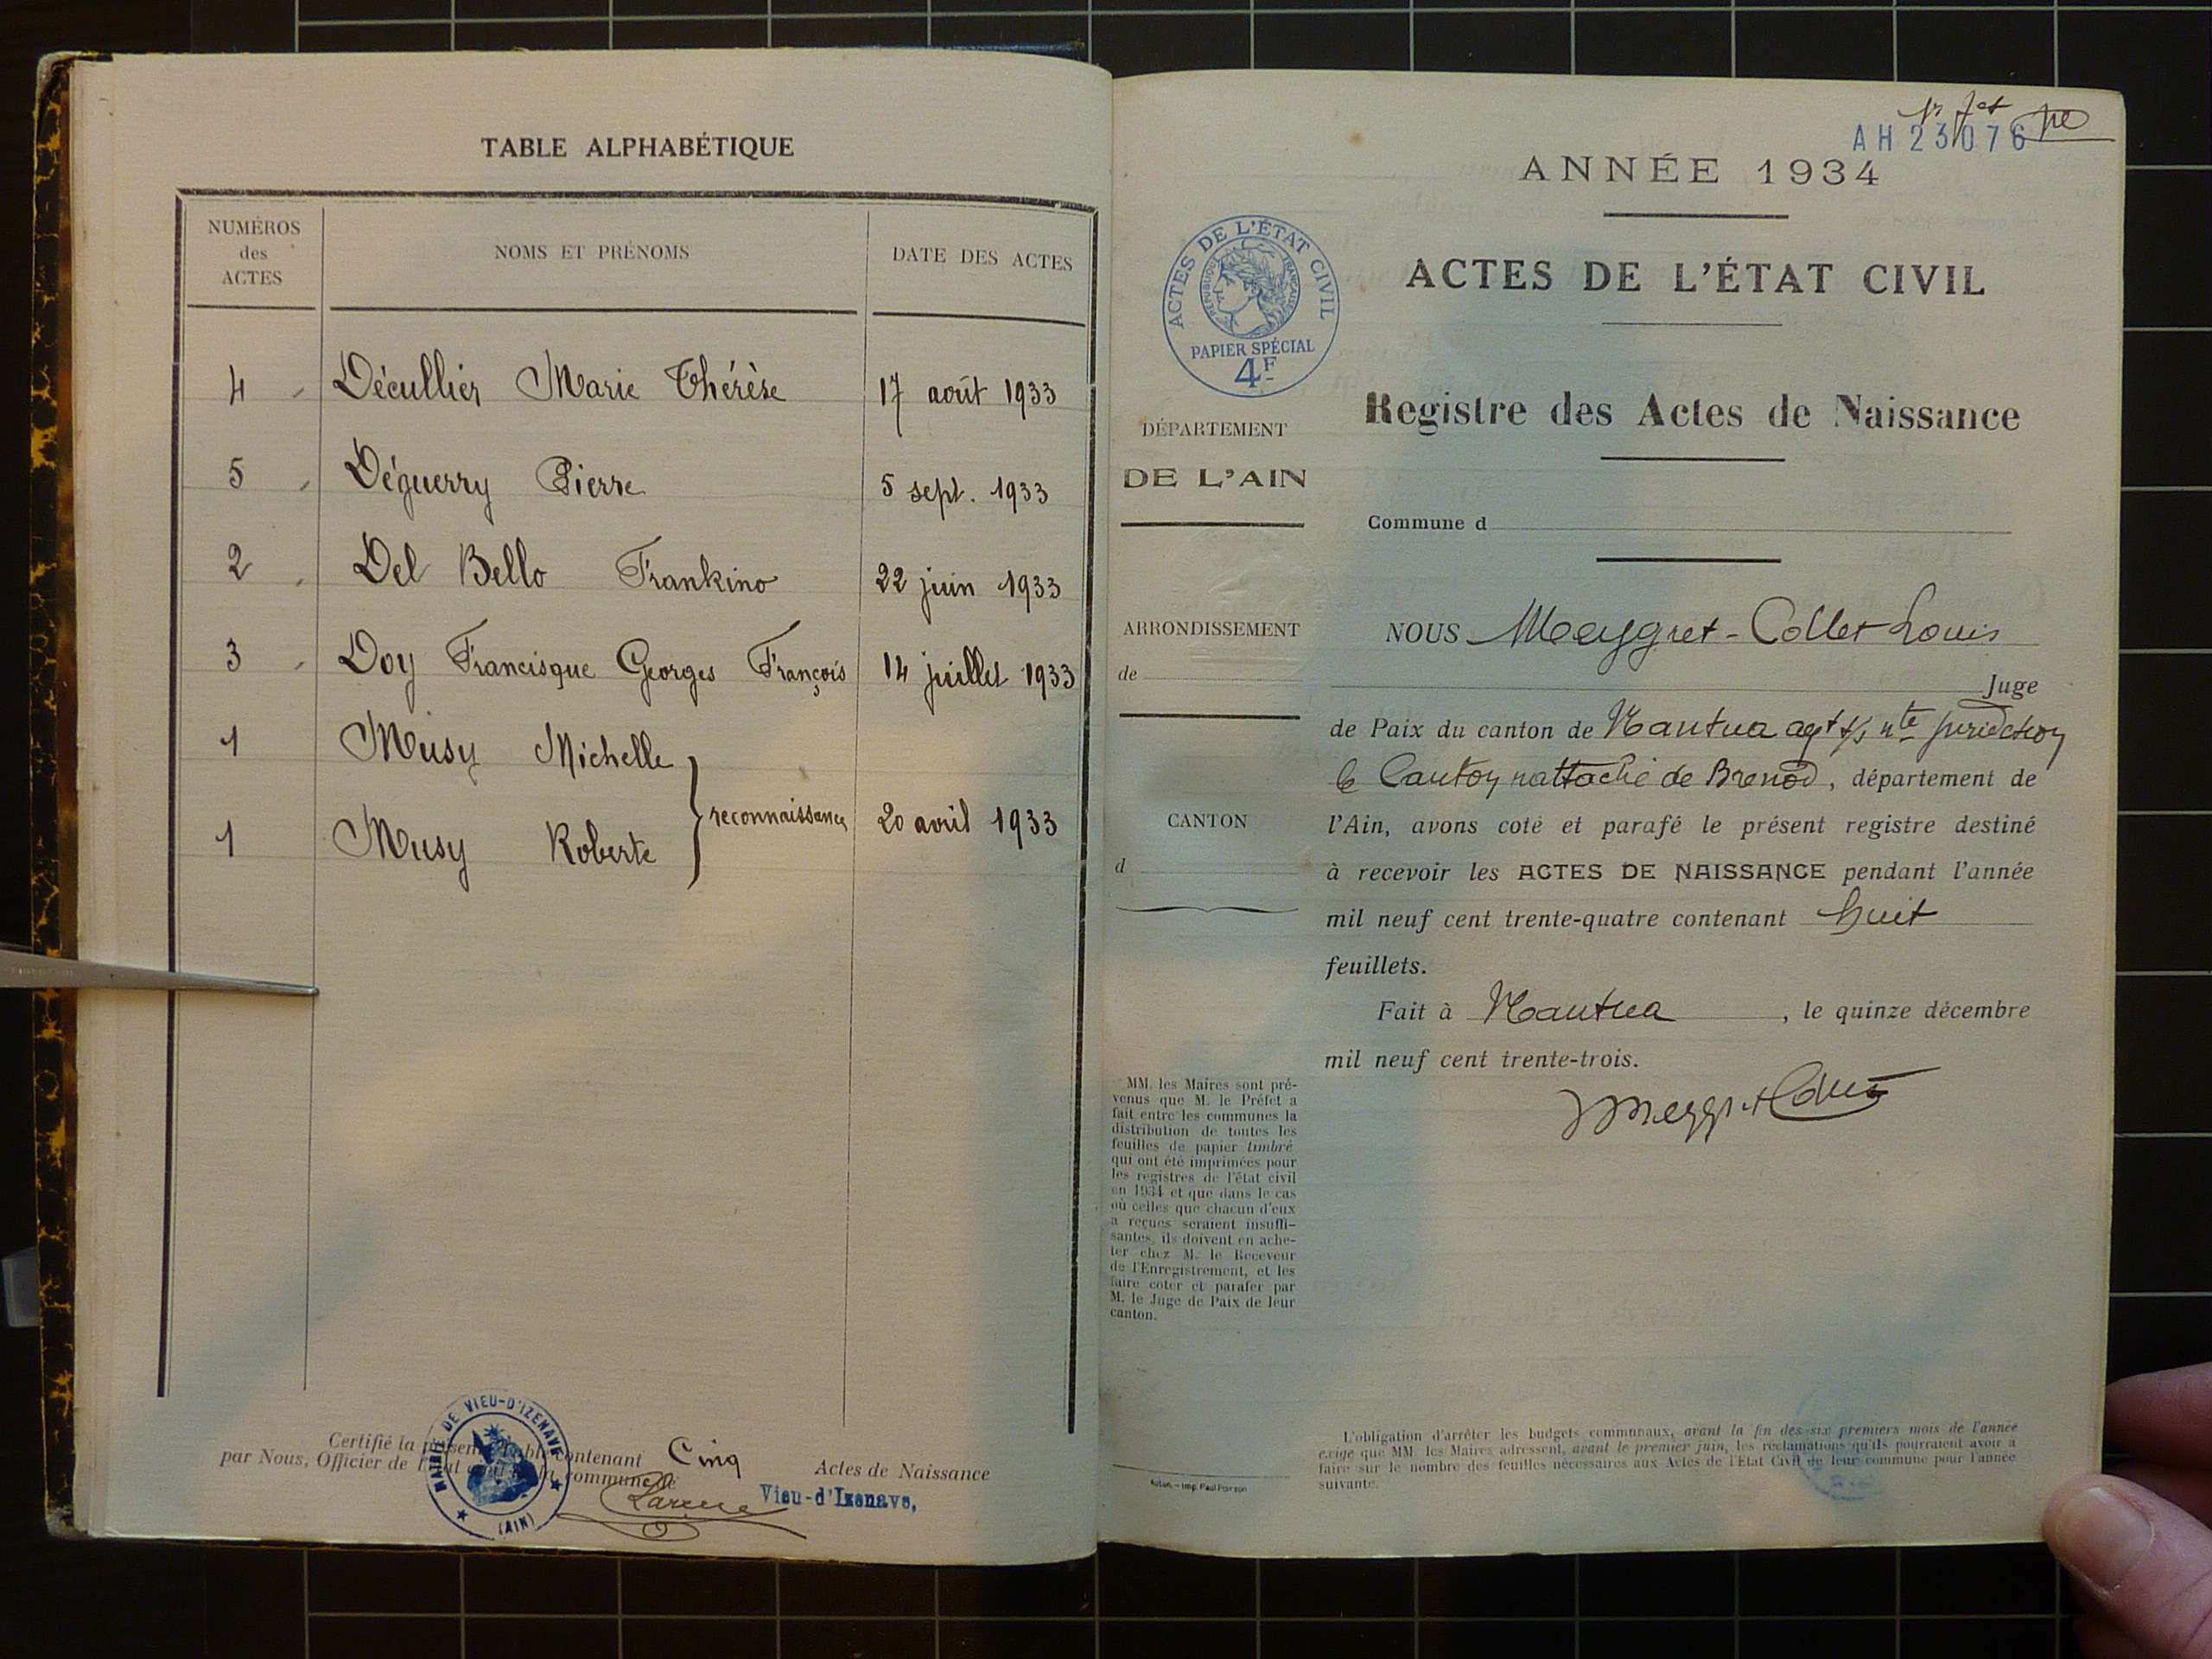 TABLE ALPHABÉTIQUE
NUMÉROS des ACTES
NOMS ET PRÉNOMS
DATE DES ACTES
4 Décullier Marie Thérèse 17 août 1933
5 Déguerry Pierre 5 sept. 1933
2 Del Bello Frankino 22 juin 1933
3 Doy Francisque Georges François 14 juillet 1933
1 Musy Michelle
reconnaissance 20 avril 1933
1 Musy Roberte
Certifié la présente Table contenant Cinq Actes de Naissance
par Nous, Officier de l'état civil de la commune de Vieu-d'Izenave,
MAIRIE DE VIEU-D'IZENAVE
(AIN)
AH 23076
ANNÉE 1934
ACTES DE L'ÉTAT CIVIL
ACTES DE L'ÉTAT CIVIL
RÉPUBLIQUE FRANÇAISE
PAPIER SPÉCIAL
4F
Registre des Actes de Naissance
DÉPARTEMENT
DE L'AIN
Commune d
ARRONDISSEMENT
de
CANTON
d
NOUS Meygret-Collet Louis
Juge
de Paix du canton de Nantua agt juridiction
le Canton rattaché de Brenod, département de
l'Ain, avons coté et parafé le présent registre destiné
à recevoir les ACTES DE NAISSANCE pendant l'année
mil neuf cent trente-quatre contenant huit
feuillets.
Fait à Nantua, le quinze décembre
mil neuf cent trente-trois.
MM. les Maires sont pré-
venus que M. le Préfet a
fait entre les communes la
distribution de toutes les
feuilles de papier timbré
qui ont été imprimées pour
les registres de l'état civil
en 1934 et que dans le cas
où celles que chacun d'eux
a reçues seraient insuffi-
santes, ils doivent en ache-
ter chez M. le Receveur
de l'Enregistrement, et les
faire coter et parafer par
M. le Juge de Paix de leur
canton.
L'obligation d'arrêter les budgets communaux, avant la fin des six premiers mois de l'année
exige que MM. les Maires adressent, avant le premier juin, les réclamations qu'ils pourraient avoir à
faire sur le nombre des feuilles nécessaires aux Actes de l'Etat Civil de leur commune pour l'année
suivante.